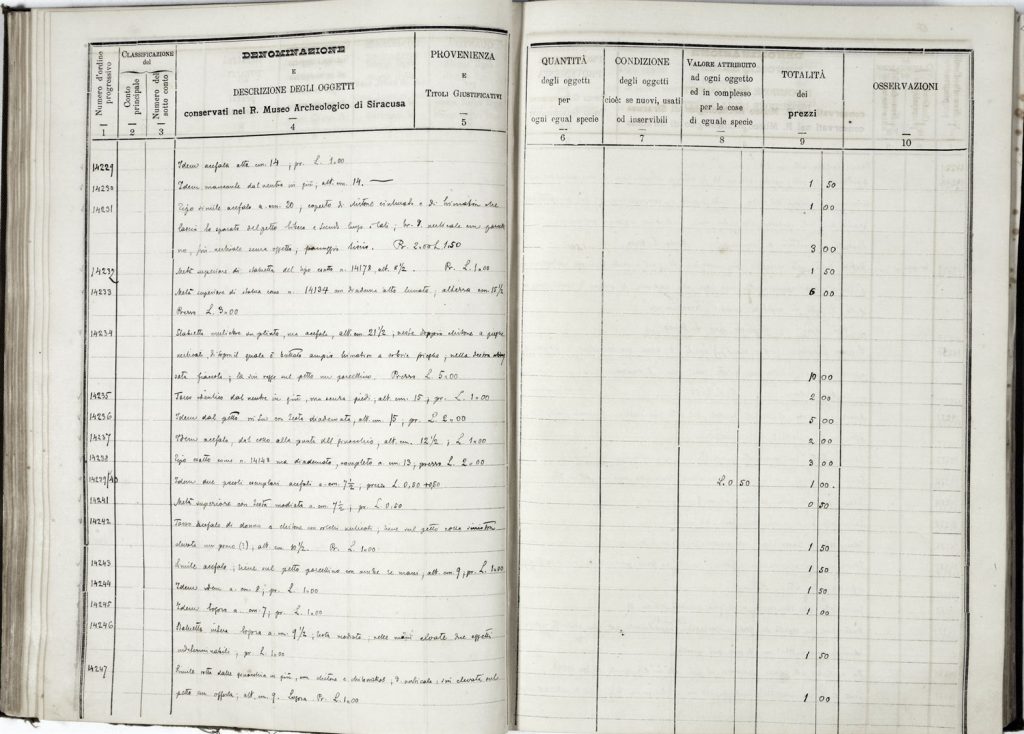 Numero d'ordine progressivo
CLASSIFICAZIONE del
Conto principale
Numero del sotto conto
DENOMINAZIONE
E
DESCRIZIONE DEGLI OGGETTI
conservati nel R. Museo Archeologico di Siracusa
PROVENIENZA
E
TITOLI GIUSTIFICATIVI
1 2 3 4 5
QUANTITÀ
degli oggetti
per
ogni egual specie
CONDIZIONE
degli oggetti
cioè: se nuovi, usati
od inservibili
VALORE ATTRIBUITO
ad ogni oggetto
ed in complesso
per le cose
di eguale specie
TOTALITÀ
dei
prezzi
OSSERVAZIONI
6 7 8 9 10
14229 Idem acefala alta cm. 14; pr. L. 1.00
14230 Idem mancante dal ventre in giù; alt. cm. 14. — 1 50
14231 Tipo simile acefalo a cm. 20, coperto di chitone e di himation che 1 00
lascia la spalla del petto libera e scende lungo i lati;
no, più verticale senza oggetto; panneggio liscio. Pr. 2.00 L 1.50 3 00
14232 Metà superiore di statuetta del tipo esatto n. 14178, alt. 8½. Pr. L. 1.00 1 50
14233 Metà superiore di statua come n. 14134 con diadema alto lunato; altezza cm. 15½ 6 00
Prezzo L. 3.00
14234 Statuetta muliebre ma acefala, alt. cm. 21½; veste doppio chitone a pieghe
verticali, di sopra il quale è buttato ampio himation a sobrie pieghe; nella destra
fiaccola; la sin. regge sul petto un porcellino. Prezzo L. 5.00 10 00
14235 Torso identico dal ventre in giù, ma senza piedi; alt. cm. 15; pr. L. 1.00 2 00
14236 Idem dal petto in su con testa diademata, alt. cm. 15, pr. L. 2.00 5 00
14237 Idem acefalo, dal collo alla punta del ginocchio, alt. cm. 12½; L 1.00 2 00
14238 Tipo esatto come n. 14143 ma diademato, completo a cm. 13, prezzo L. 2.00 3 00
14239/40 Idem due piccoli esemplari acefali a cm. 7½, prezzo L. 0,50 + 0,50 L. 0 50 1 00
14241 Metà superiore con testa modiata a cm. 7½; pr L 0.50 0 50
14242 Torso acefalo di donna a chitone con verticali; tiene sul petto colla sinistra
elevata un pomo (?); alt. cm. 10½. Pr. L. 1.00 1 50
14243 Simile acefalo; tiene sul petto porcellino con ambe le mani, alt. cm. 9; pr. L. 1.00 1 50
14244 Idem idem a cm. 8; pr. L. 1.00 1 50
14245 Idem logora a cm. 7; pr. L. 1.00 1 00
14246 Statuetta intera logora a cm. 9½; testa modiata; nelle mani elevate due oggetti
indeterminabili, pr L. 1.00 1 50
14247 Simile rotta dalle ginocchia in giù, con chitone e verticale; elevata sul
petto un offerta; alt. cm. 9. Logora Pr. L. 1.00 1 00